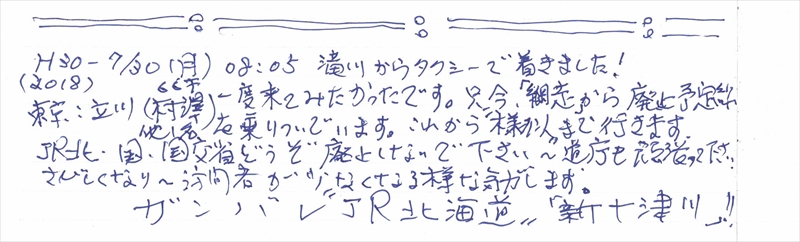 H30-7/30(月) 08:05 滝川からタクシーで着きました!
(2018) 66才
東京:立川(村澤)一度来てみたかったです。只今、「網走」から廃止予定線
他1名を乗りついでいます。これから"様似"まで行きます。
JR北・国・国交省どうぞ廃止しないで下さい〜道庁も頑張って下さい
さびしくなり〜訪問者が少なくなる様な気がします。
ガンバレ"JR北海道"「新十津川」!!